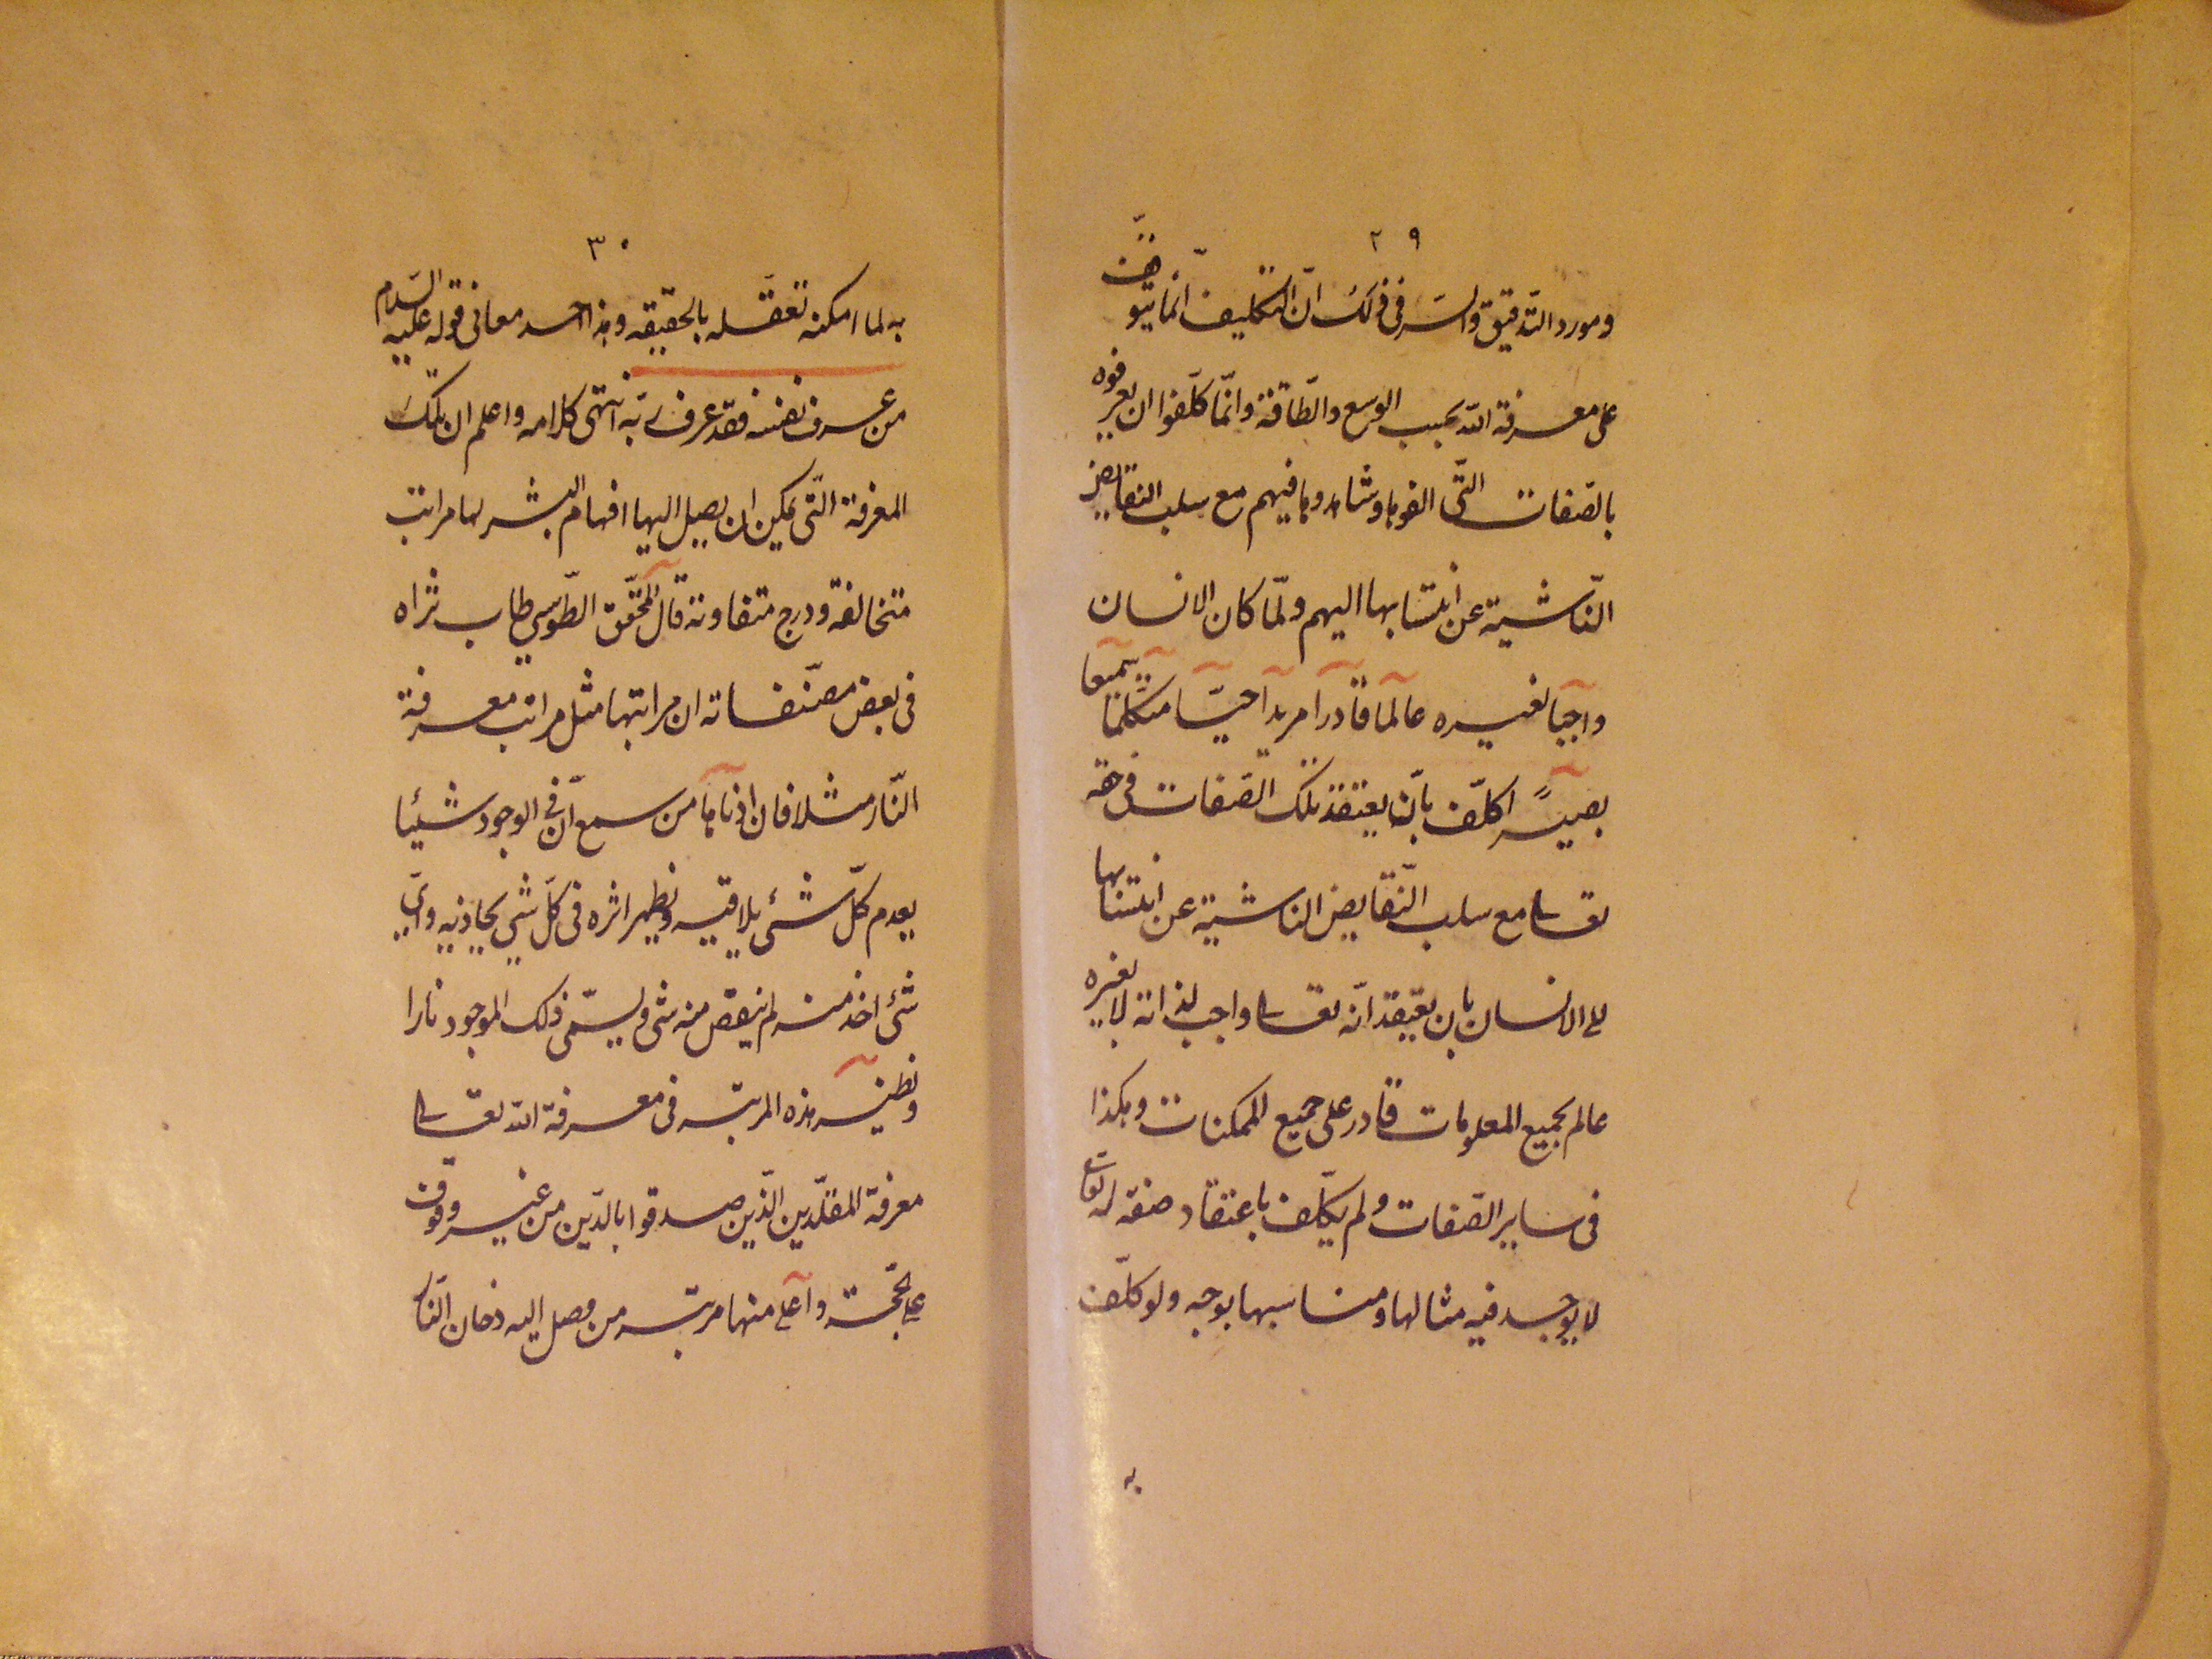 ٢٩
ومورد التدقيق والسّر فى ذلك انّ التكليف انّما يتوقّف
على معرفة الله بحسب الوسع والطّاقة وانّما كلّفوا ان يعرفوه
بالصّفات التّى الفوها وشاهدوها فيهم مع سلب النقايص
النّاشية عن انتسابها اليهم ولمّا كان الانسان
واجبا لغيره عالما قادرا مريدا حيّا متكلما سميعا
بصيرا كلّف بان يعتقد تلك الصّفات فى حقه
تعالى مع سلب النّقايص الناشية عن انتسابها
الى الانسان بان يعتقد انّه تعالى واجب لذاته لا لغيره
عالم بجميع المعلومات قادر على جميع الممكنات وهكذا
فى ساير الصّفات ولم يكلّف باعتقاد صفة له تعالى
لا يوجد فيه مثالها ومناسبها بوجه ولو كلّف
به
٣٠
به لما امكنه تعقّله بالحقيقه وهذا احد معانى قوله عليه السّلام
من عرف نفسه فقد عرف ربّه انتهى كلامه واعلم ان تلك
المعرفة التّى يمكن ان يصل اليها افهام البشر لها مراتب
متخالفة ودرج متفاوتة قال المحقّق الطّوسي طاب ثراه
فى بعض مصنّفاته ان مراتبها مثل مراتب معرفة
النّار مثلا فان ادناها من سمع انّ فى الوجود شيئا
يعدم كلّ شئ يلاقيه ويظهر اثره فى كلّ شئ يحاذيه واىّ
شئ اخذ منه لم ينقص منه شئ ويسمّى ذلك الموجود نارا
ونظير هذه المرتبه فى معرفة الله تعالى
معرفة المقلّدين الّذين صدقوا بالدّين من غير وقوف
على الحجّة واعلى منها مرتبه من وصل اليه دخان النّار